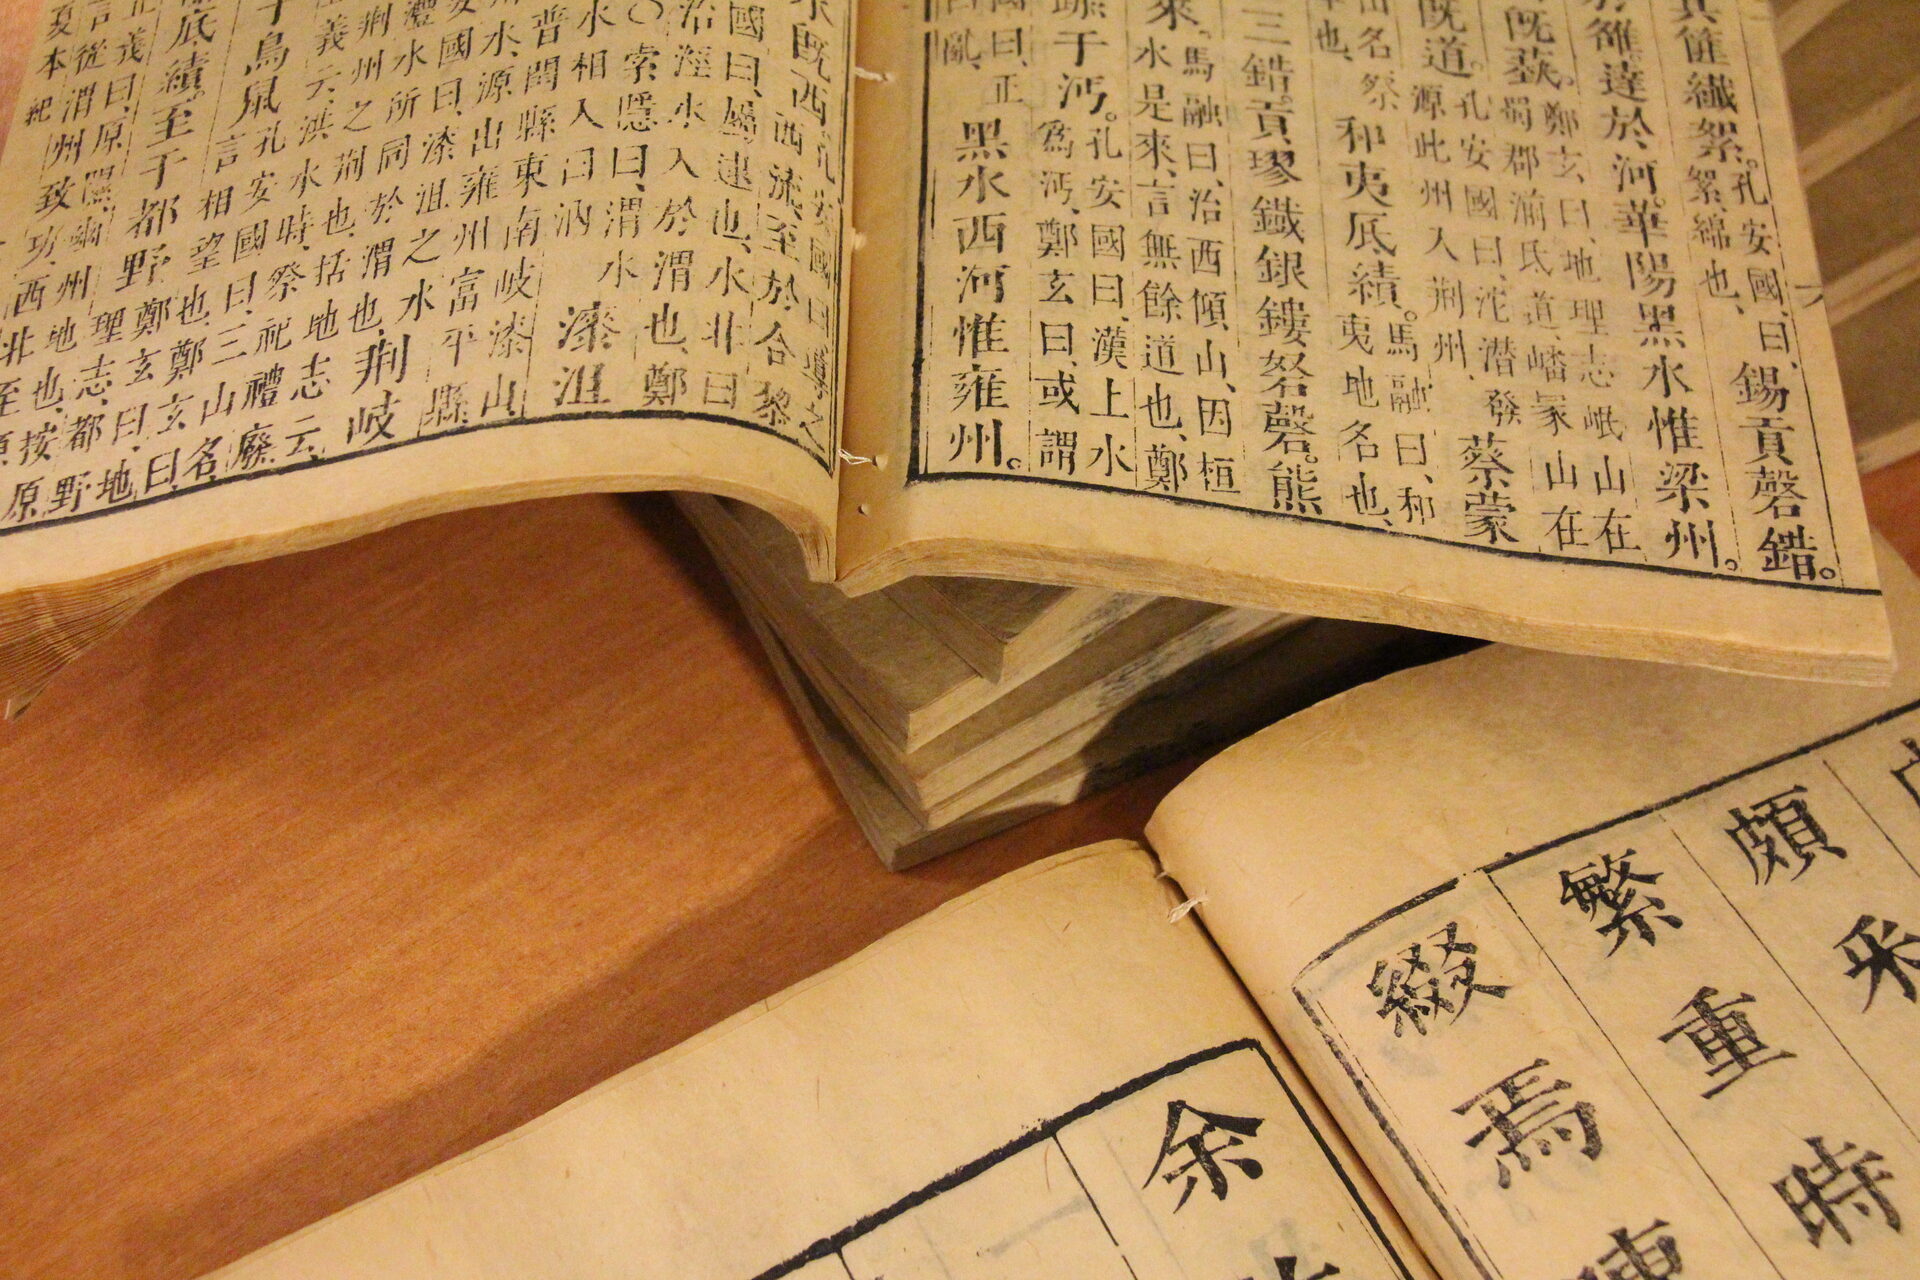 其篚纖絮。孔安國曰、
絮、綿也、錫貢磬錯。
雒達於河。華陽黑水惟梁州。
既蓺。鄭玄曰、地理志岷山在
蜀郡湔氐道、嶓冢山在
既道。孔安國曰、沱潛發
源此州入荊州、蔡蒙
出名祭
也、和夷厎績。馬融曰、和
夷地名也、
三錯。貢璆鐵銀鏤砮磬。熊
來。馬融曰、治西傾山、因桓
水是來、言無餘道也、鄭
踰于沔。孔安國曰、漢上水
爲沔、鄭玄曰、或謂
國曰、正
曰亂、黑水西河惟雍州。
水既西。孔安國曰導之
西流至於合黎
國曰、屬逮也、水北曰
治涇水入於渭也、鄭
〇索隱曰、渭水
水相入曰汭漆沮
普閏縣東南岐漆山
水、源出雍州富平縣
安國曰、漆沮之水
澧水所同於渭也、荊岐
荊州之荊也、括地志云、
義云、洪水時、祭祀禮廢
于鳥鼠孔安國曰、三山名、
言相望也、鄭玄曰、
厎績。至于都野鄭玄曰、地
理志、都野
義曰、原隰、豳州地也、按原
言從渭州致功、西北至原
夏本紀
頗采
繁重時
綴焉
余